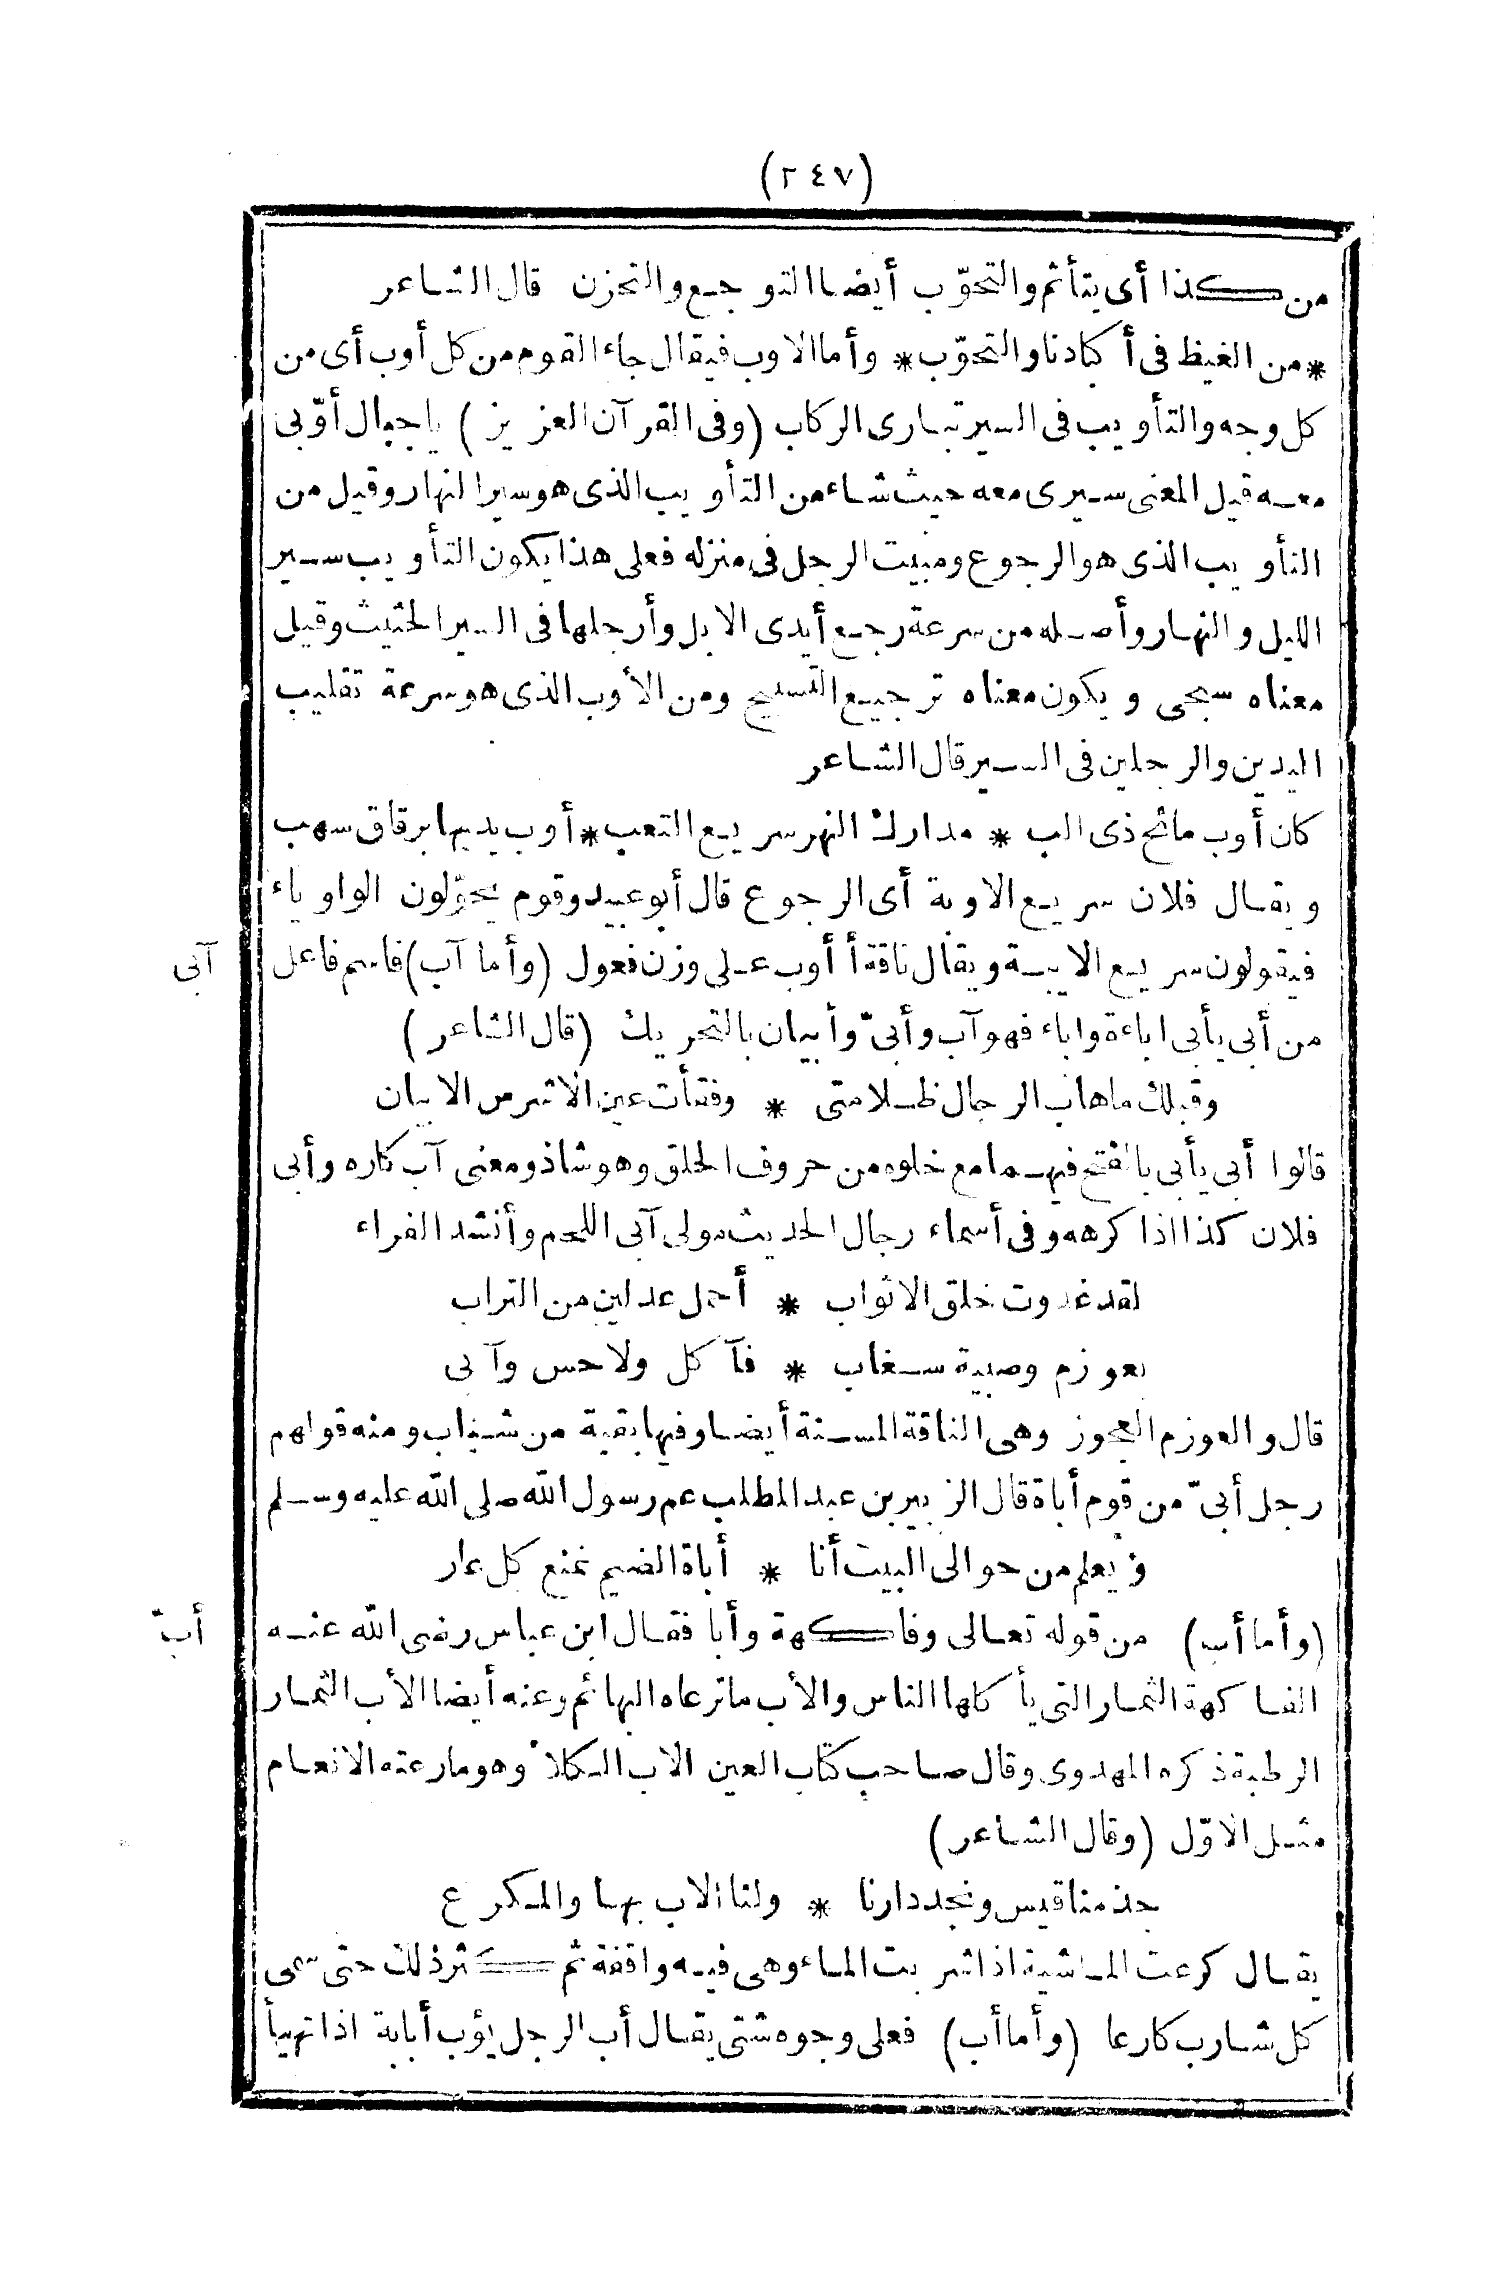 (٢٤٧)
من كذا أى يتأثم والتحوّب أيضا التوجع والتحزن قال الشاعر
* من الغيظ فى أكبادنا والتحوّب * وأما الاوب فيقال جاء القوم من كل أوب أى من
كل وجه والتأويب فى السير تبارى الركاب (وفى القرآن العزيز) ياجبال أوّبى
معه قيل المعنى سيرى معه حيث شاء من التأويب الذى هو سير النهار وقيل من
التأويب الذى هو الرجوع ومبيت الرجل فى منزله فعلى هذا يكون التأويب سير
الليل والنهار وأصله من سرعة رجع أيدى الابل وأرجلها فى السير الحثيث وقيل
معناه سبحى ويكون معناه ترجيع التسبيح ومن الأوب الذى هو سرعة تقليب
اليدين والرجلين فى السير قال الشاعر
كان أوب مائح ذى الب * مدارك النهر سريع التعب * أوب يديها برقاق سهب
ويقال فلان سريع الاوبة أى الرجوع قال أبو عبيد وقوم يحوّلون الواو ياء
فيقولون سريع الايبة ويقال ناقة أأوب على وزن فعول (وأما آب) فاسم فاعل
آبى
من أبى يأبى اباءة واباء فهو آب وأبىّ وأبيان بالتحريك (قال الشاعر)
وقبلك ماهاب الرجال ظلامتى * وفقأت عين الاشرس الابيان
قالوا أبى يأبى بالفتح فيهما مع خلوه من حروف الحلق وهو شاذ ومعنى آب كاره وأبى
فلان كذا اذا كرهه وفى أسماء رجال الحديث مولى آبى اللحم وأنشد الفراء
لقد غدوت خلق الاثواب * أحمل عدلين من التراب
بعوزم وصبية سغاب * فآكل ولاحس وآبى
قال والعوزم العجوز وهى الناقة المسنة أيضا وفيها بقية من شباب ومنه قولهم
رجل أبىّ من قوم أباة قال الزبير بن عبد المطلب عم رسول الله صلى الله عليه وسلم
ويعلم من حوالى البيت أنا * أباة الضيم نمنع كل عار
(وأما أب) من قوله تعالى وفاكهة وأبا فقال ابن عباس رضى الله عنه
أبّ
الفاكهة الثمار التى يأكلها الناس والأب ماترعاه البهائم وعنه أيضا الأب الثمار
الرطبة ذكره المهدوى وقال صاحب كتاب العين الاب الكلأ وهو مارعته الانعام
مثل الاوّل (وقال الشاعر)
جذمنا قيس ونجد دارنا * ولنا الاب بها والمكرع
يقال كرعت الماشية اذا شربت الماء وهى فيه واقفة ثم كثر ذلك حتى سمى
كل شارب كارعا (وأما أب) فعلى وجوه شتى يقال أب الرجل يؤب أبابة اذا تهيأ